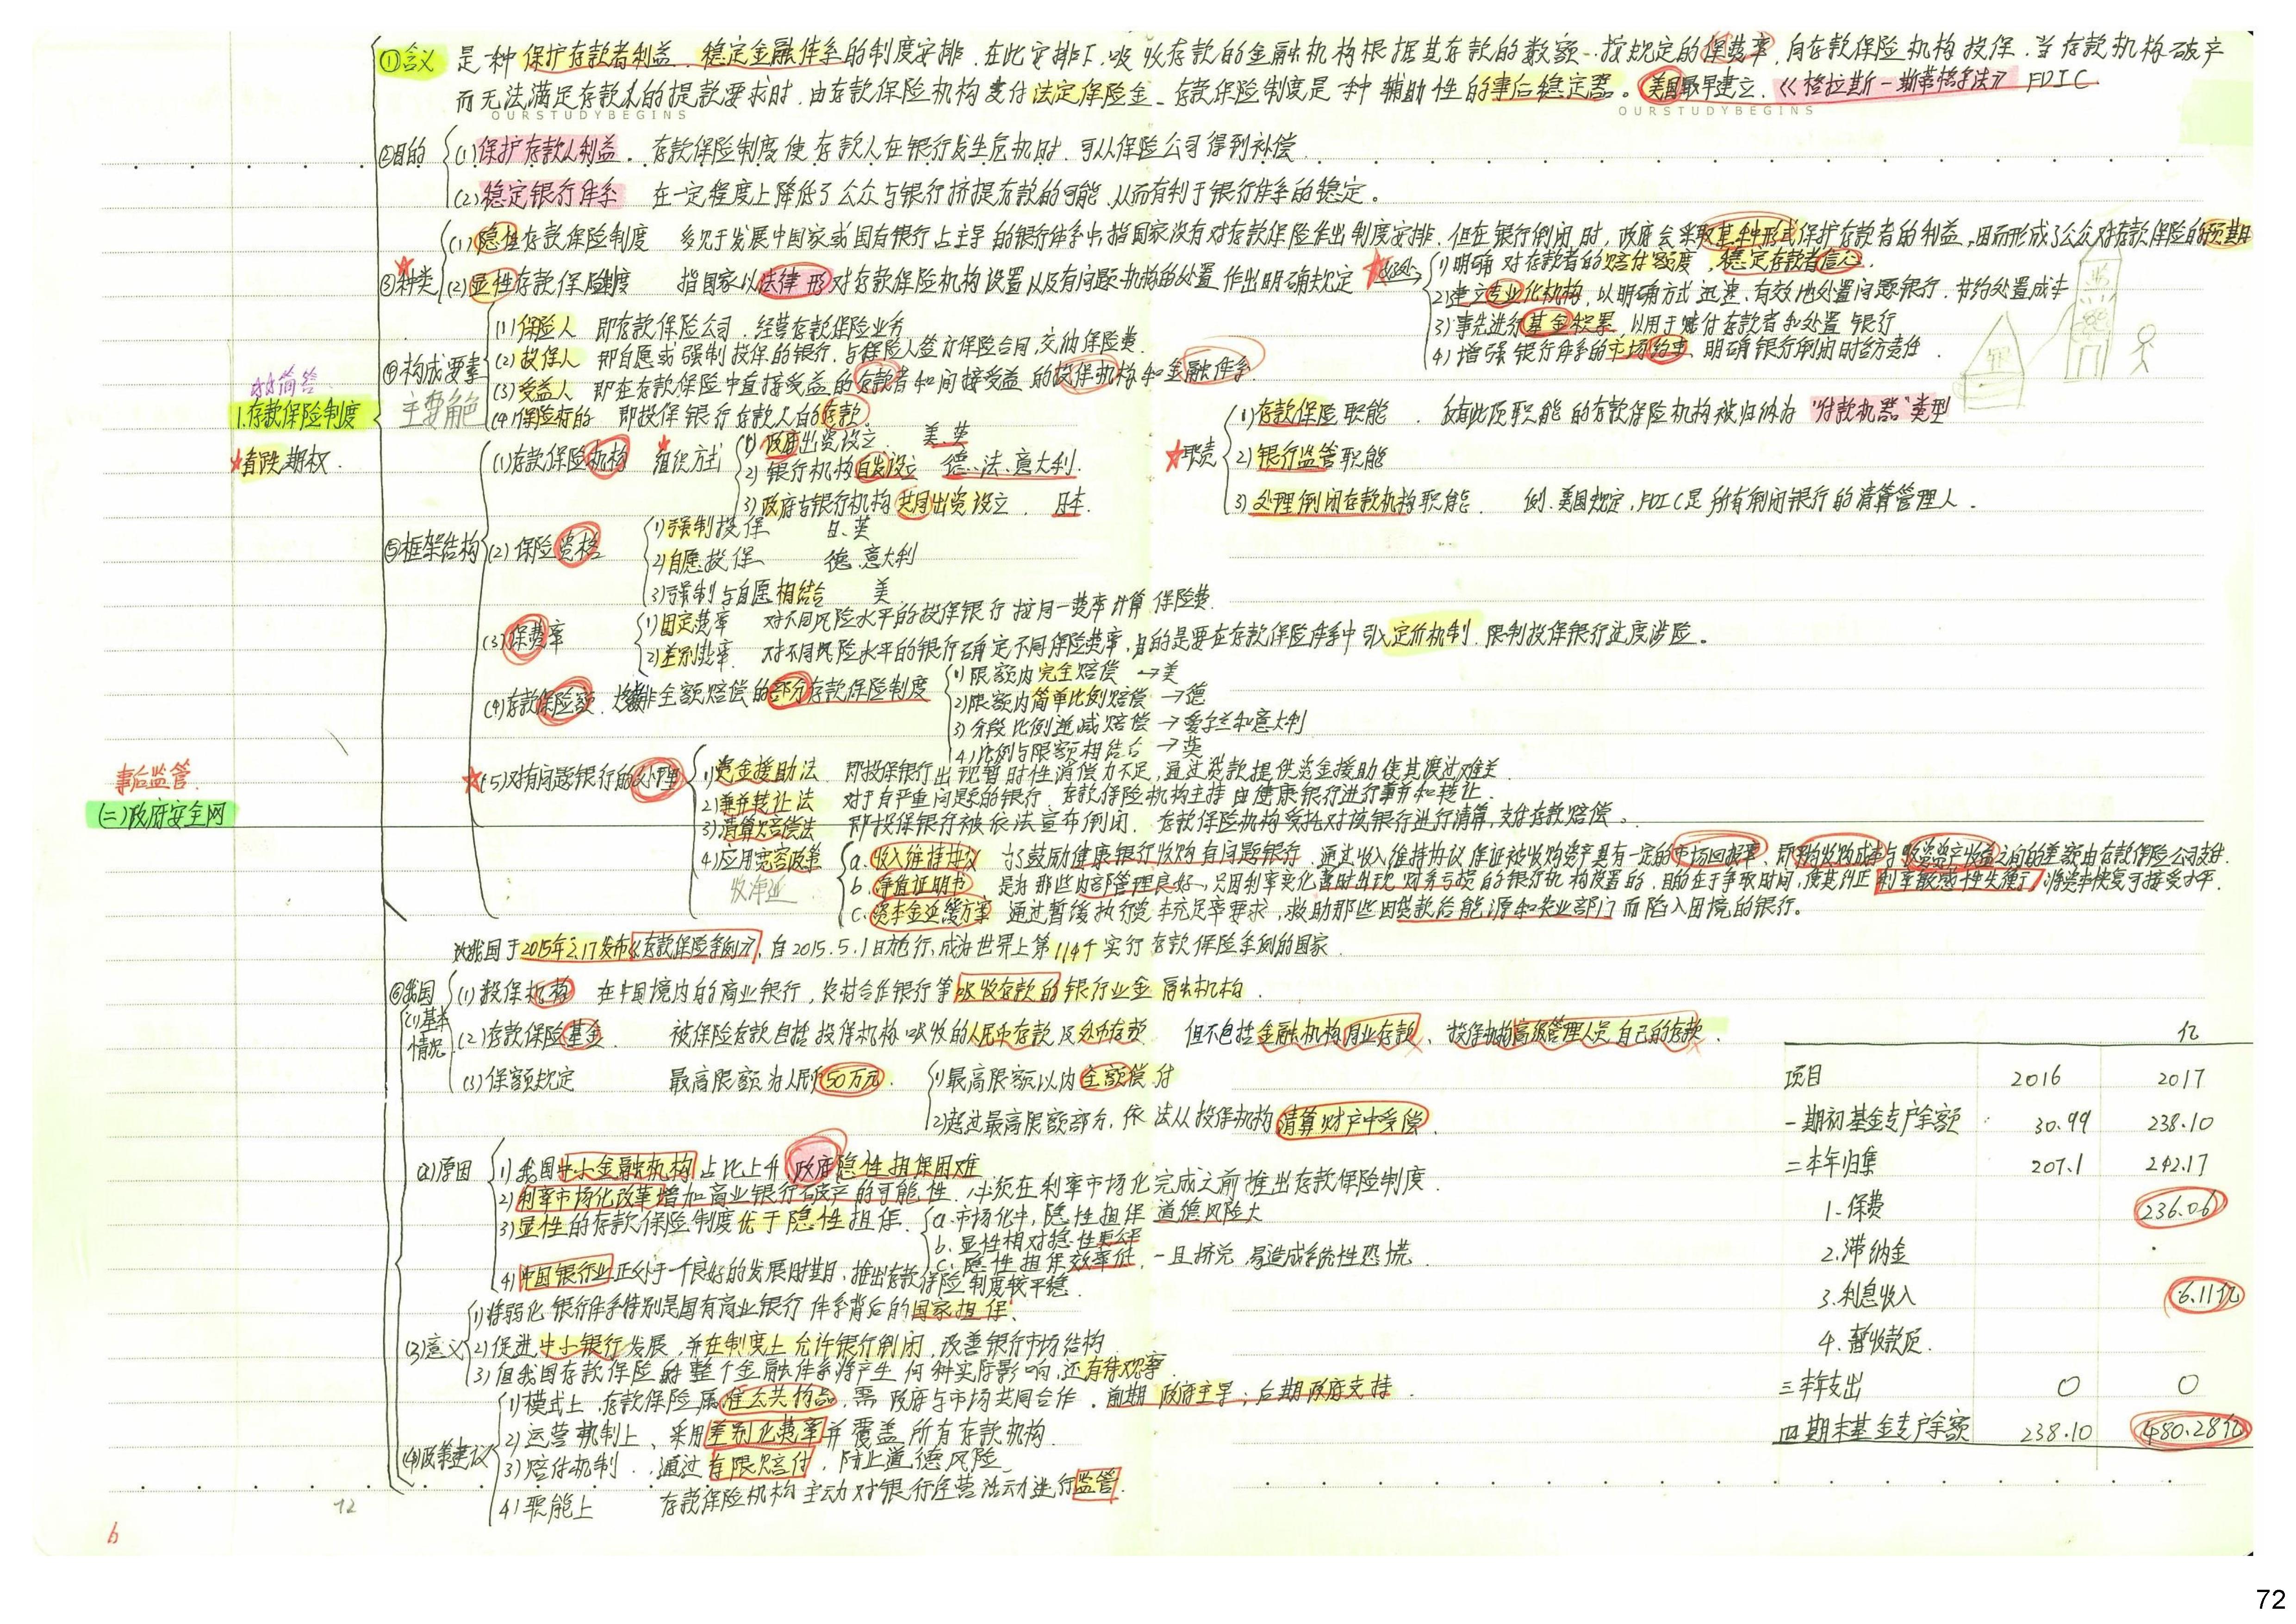 ①含义 是一种保护存款者利益、稳定金融体系的制度安排.在此安排下,吸收存款的金融机构根据其存款的数额.按规定的保费率,向存款保险机构投保.当存款机构破产
而无法满足存款人的提款要求时.由存款保险机构支付法定保险金.存款保险制度是一种辅助性的事后稳定器。美国最早建立.《格拉斯-斯蒂格尔法》 FDIC
OURSTUDYBEGINS OURSTUDYBEGINS
②目的 (1)保护存款人利益. 存款保险制度使存款人在银行发生危机时.可从保险公司得到补偿
(2)稳定银行体系 在一定程度上降低了公众与银行挤提存款的可能.从而有利于银行体系的稳定。
(1)隐性存款保险制度 多见于发展中国家或国有银行占主导的银行体系中,指国家没有对存款保险作出制度安排.但在银行倒闭时,政府会采取某种形式保护存款者的利益,因而形成了公众对存款保险的预期
③种类 (2)显性存款保险制度 指国家以法律形对存款保险机构设置以及有问题机构的处置作出明确规定
好处 1)明确对存款者的赔付额度,稳定存款者信心.
2)建立专业化机构,以明确方式迅速、有效地处置问题银行.节约处置成本
3)事先进行基金积累,以用于赔付存款者和处置银行
4)增强银行体系的市场约束 明确银行倒闭时各方责任.
④构成要素 主要角色
(1)保险人 即存款保险公司.经营存款保险业务
(2)投保人 即自愿或强制投保的银行.与保险人签订保险合同.交纳保险费.
(3)受益人 即在存款保险中直接受益的存款者和间接受益的投保机构和金融体系.
(4)保险标的 即投保银行存款人的存款.
简答
1.存款保险制度
★看跌期权.
(1)存款保险机构 组织方式 1)政府出资设立. 美.英
2)银行机构自发设立 德、法、意大利.
3)政府与银行机构共同出资设立. 日本.
★职责 1)存款保险职能. 仅有此项职能的存款保险机构被归纳为“付款机器”类型
2)银行监管职能
3)处理倒闭存款机构职能. 例.美国规定,FDIC是所有倒闭银行的清算管理人.
⑤框架结构 (2)保险资格 1)强制投保 日.英
2)自愿投保 德.意大利
3)强制与自愿相结合 美.
(3)保费率 1)固定费率 对不同风险水平的投保银行按同一费率计算保险费.
2)差别费率. 对不同风险水平的银行确定不同保险费率,目的是要在存款保险体系中引入定价机制.限制投保银行过度涉险。
(4)存款保险额. 非全额赔偿的部分存款保险制度 1)限额内完全赔偿→美
2)限额内简单比例赔偿→德
3)分段比例递减赔偿→爱尔兰和意大利
4)比例与限额相结合→英
★(5)对有问题银行的处理 1)资金援助法 即投保银行出现暂时性清偿力不足,通过贷款提供资金援助使其渡过难关.
2)兼并转让法 对于有严重问题的银行.存款保险机构主持由健康银行进行兼并和转让.
3)清算赔偿法 即投保银行被依法宣布倒闭.存款保险机构受托对该银行进行清算,支付存款赔偿。
事后监管.
(二)政府安全网
4)应用宽容政策 收净延
a.收入维持协议 为了鼓励健康银行收购有问题银行.通过收入维持协议保证被收购资产具有一定的市场回报率、即购收购成本与收资资产收益之间的差额由存款保险公司支付.
b.净值证明书. 是为那些内部管理良好、只因利率变化暂时出现财务亏损的银行机构设置的.目的在于争取时间,使其纠正利率敏感性失衡,将资本恢复可接受水平.
c.资本金延缓方案 通过暂缓执行资本充足率要求,救助那些因贷款给能源和农业部门而陷入困境的银行。
我国于2015年2.17发布《存款保险条例》,自2015.5.1日施行,成为世界上第114个实行存款保险条例的国家
⑥我国 (1)基本情况
(1)投保机构 在中国境内的商业银行,农村合作银行等吸收存款的银行业金融机构.
(2)存款保险基金. 被保险存款包括投保机构吸收的人民币存款及外币存款 但不包括金融机构同业存款、投保机构高级管理人员自己的存款.
(3)保额规定 最高限额为人民币50万元. 1)最高限额以内全额偿付
2)超过最高限额部分,依法从投保机构清算财产中受偿.
(2)原因 1)我国中小金融机构占比上升,政府隐性担保困难
2)利率市场化改革增加商业银行破产的可能性.必须在利率市场化完成之前推出存款保险制度.
3)显性的存款保险制度优于隐性担保. a.市场化中,隐性担保道德风险大
b.显性相对隐性更公平
c.隐性担保效率低.一旦挤兑,易造成系统性恐慌.
4)中国银行业正处于一个良好的发展时期.推出存款保险制度较平稳.
(3)意义 1)将弱化银行体系特别是国有商业银行体系背后的国家担保.
2)促进中小银行发展,并在制度上允许银行倒闭,改善银行市场结构
3)但我国存款保险对整个金融体系将产生何种实际影响,还有待观察.
(4)政策建议 1)模式上.存款保险属准公共物品,需政府与市场共同合作.前期政府主导;后期政府支持.
2)运营机制上、采用差别化费率并覆盖所有存款机构.
3)赔付机制..通过有限赔付.防止道德风险
4)职能上 存款保险机构主动对银行经营活动进行监管.
亿
项目 2016 2017
一期初基金专户余额 30.99 238.10
二本年归集 207.1 242.17
1.保费 236.06
2.滞纳金 .
3.利息收入 6.11亿
4.暂收款项.
三本年支出 0 0
四期末基金专户余额 238.10 480.28亿
12
6
72